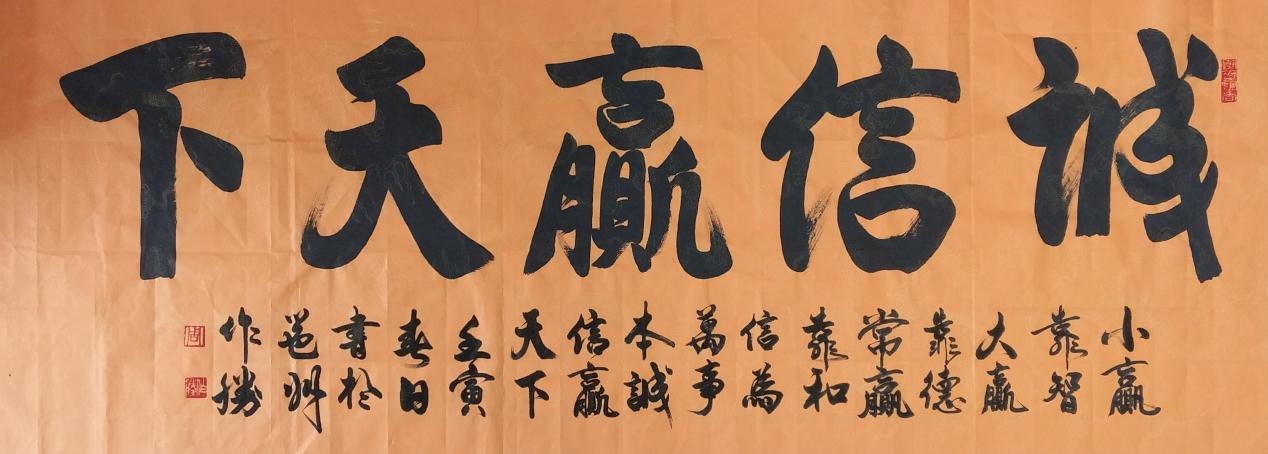 誠信贏天下
小贏
靠智
大贏
靠德
常贏
靠和
信為
萬事
本誠
信贏
天下
壬寅
春日
書於
邕州
作勝
周